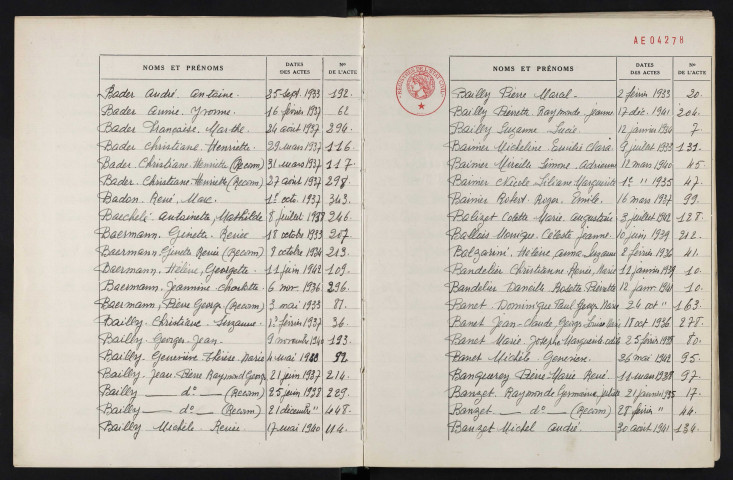 NOMS ET PRÉNOMS DATES DES ACTES No DE L'ACTE
Bader André Antoine. 25 sept. 1933 192.
Bader Annie Yvonne. 16 février 1937 62
Bader Françoise Marthe. 24 août 1937 294.
Bader Christiane Henriette 29 mars 1937 116.
Bader Christiane Henriette (Recom) 31 mars 1937 117.
Bader Christiane Henriette (Recom) 27 août 1937 298.
Badon René, Marc. 1er oct. 1937 343.
Baecheli Antoinette, Mathilde 8 juillet 1937 246.
Baermann Ginette Renée 18 octobre 1933 207.
Baermann Ginette Renée (Recom) 9 octobre 1934 213.
Baermann Hélène, Georgette 11 juin 1942 109.
Baermann, Jeannine Charlotte 6 nov. 1936 296.
Baermann, Pierre George (Recom) 3 mai 1933 87.
Bailly Christiane Suzanne 1er février 1937 36.
Bailly Georges Jean. 9 novembre 1940 193.
Bailly Geneviève Thérèse Marie 4 mai 92.
Bailly Jean Pierre Raymond Georges 21 juin 1937 214.
Bailly — do — (Recom) 25 juin 1938 229.
Bailly — do — (Recom) 21 décembre " 448.
Bailly Michèle Renée 17 mai 1940 114.
AE04278
NOMS ET PRÉNOMS DATES DES ACTES No DE L'ACTE
Bailly Pierre Marcel 2 février 1933 20.
Bailly Pierrette Raymonde, Jeanne 17 déc. 1941 204.
Bailly Suzanne Lucie 12 janvier 7
Bainier Micheline Clara 9 juillet 1933 131.
Bainier Mireille Simone 12 mars 1940 45.
Bainier Nicole Liliane Marguerite 1er " 1935 47.
Bainier Robert Roger Emile. 16 mars 1937 99.
Balizet Colette Marie Augustine 3 juillet 1942 128.
Ballois Monique Céleste Jeanne. 10 juin 1939 212.
Balzarini Hélène Anna Suzanne 2 février 1936 41.
Bandelier Christianne Renée, Marie 12 janvier 1939 10.
Bandelier Danielle Odette Pierrette 12 janv. 1941 10.
Banet Dominique Paul George Marie 24 oct " 163.
Banet Jean-Claude, Georges, Louis Marie 18 oct 1936 278.
Banet Marie Josephe Marguerite 25 février 80.
Banet Michèle Geneviève. 26 mai 1942 95.
Pierre Marie René. 11 mars 1938 97.
Banzet Raymonde Germaine Juliette 21 janvier 1935 17.
Banzet — do — (Recom) 28 février " 44.
Banzet Michel André. 30 août 1941 134.